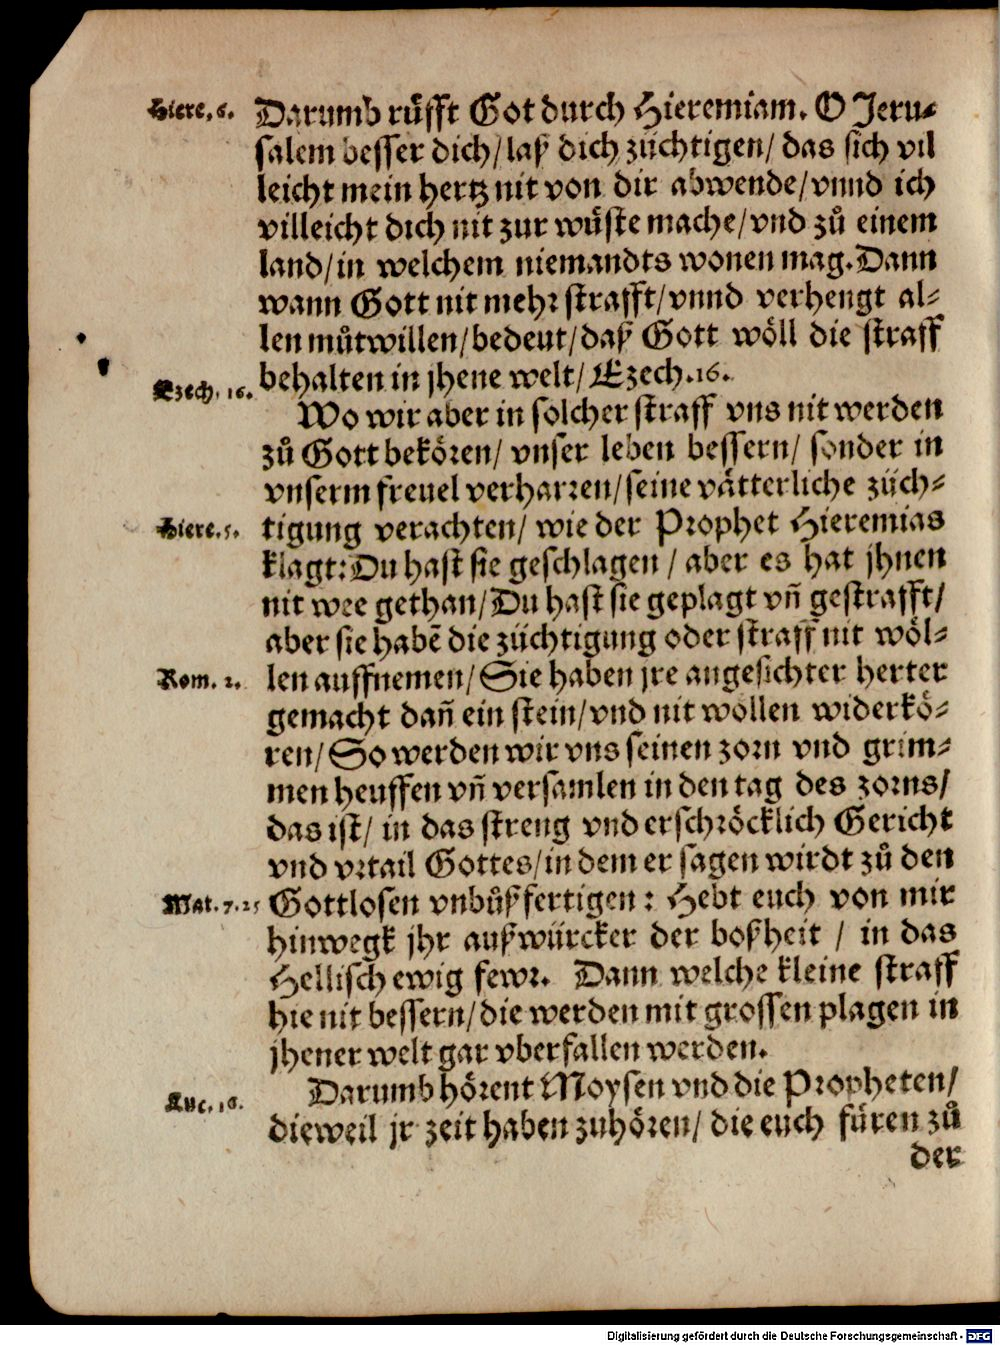 Hiere. 6. Darumb rüfft Got durch Hieremiam. O Jeru-
salem besser dich/ laß dich züchtigen/ das sich vil
leicht mein hertz nit von dir abwende/ vnnd ich
villeicht dich nit zur wüste mache/ vnd zů einem
land/ in welchem niemandts wonen mag. Dann
wann Gott nit mehr strafft/ vnnd verhengt al-
len můtwillen/ bedeut/ daß Gott wöll die straff
Ezech. 16. behalten in jhene welt/ Ezech. 16.
Wo wir aber in solcher straff vns nit werden
zů Gott bekören/ vnser leben bessern/ sonder in
vnserm freuel verharren/ seine vätterliche züch-
Hiere. 5. tigung verachten/ wie der Prophet Hieremias
klagt: Du hast sie geschlagen / aber es hat jhnen
nit wee gethan/ Du hast sie geplagt vñ gestrafft/
aber sie habē die züchtigung oder straff nit wöl-
Rom. 2. len auffnemen/ Sie haben jre angesichter herter
gemacht dañ ein stein/ vnd nit wöllen widerkö-
ren/ So werden wir vns seinen zorn vnd grim-
men heuffen vñ versamlen in den tag des zorns/
das ist/ in das streng vnd erschröcklich Gericht
vnd vrtail Gottes/ in dem er sagen wirdt zů den
Mat. 7. 25 Gottlosen vnbůßfertigen: Hebt euch von mir
hinwegk jhr außwürcker der boßheit / in das
Hellisch ewig fewr. Dann welche kleine straff
hie nit bessern/ die werden mit grossen plagen in
jhener welt gar vberfallen werden.
Luc. 16. Darumb hörent Moysen vnd die Propheten/
dieweil jr zeit haben zuhören/ die euch füren zů
der
Digitalisierung gefördert durch die Deutsche Forschungsgemeinschaft - DFG